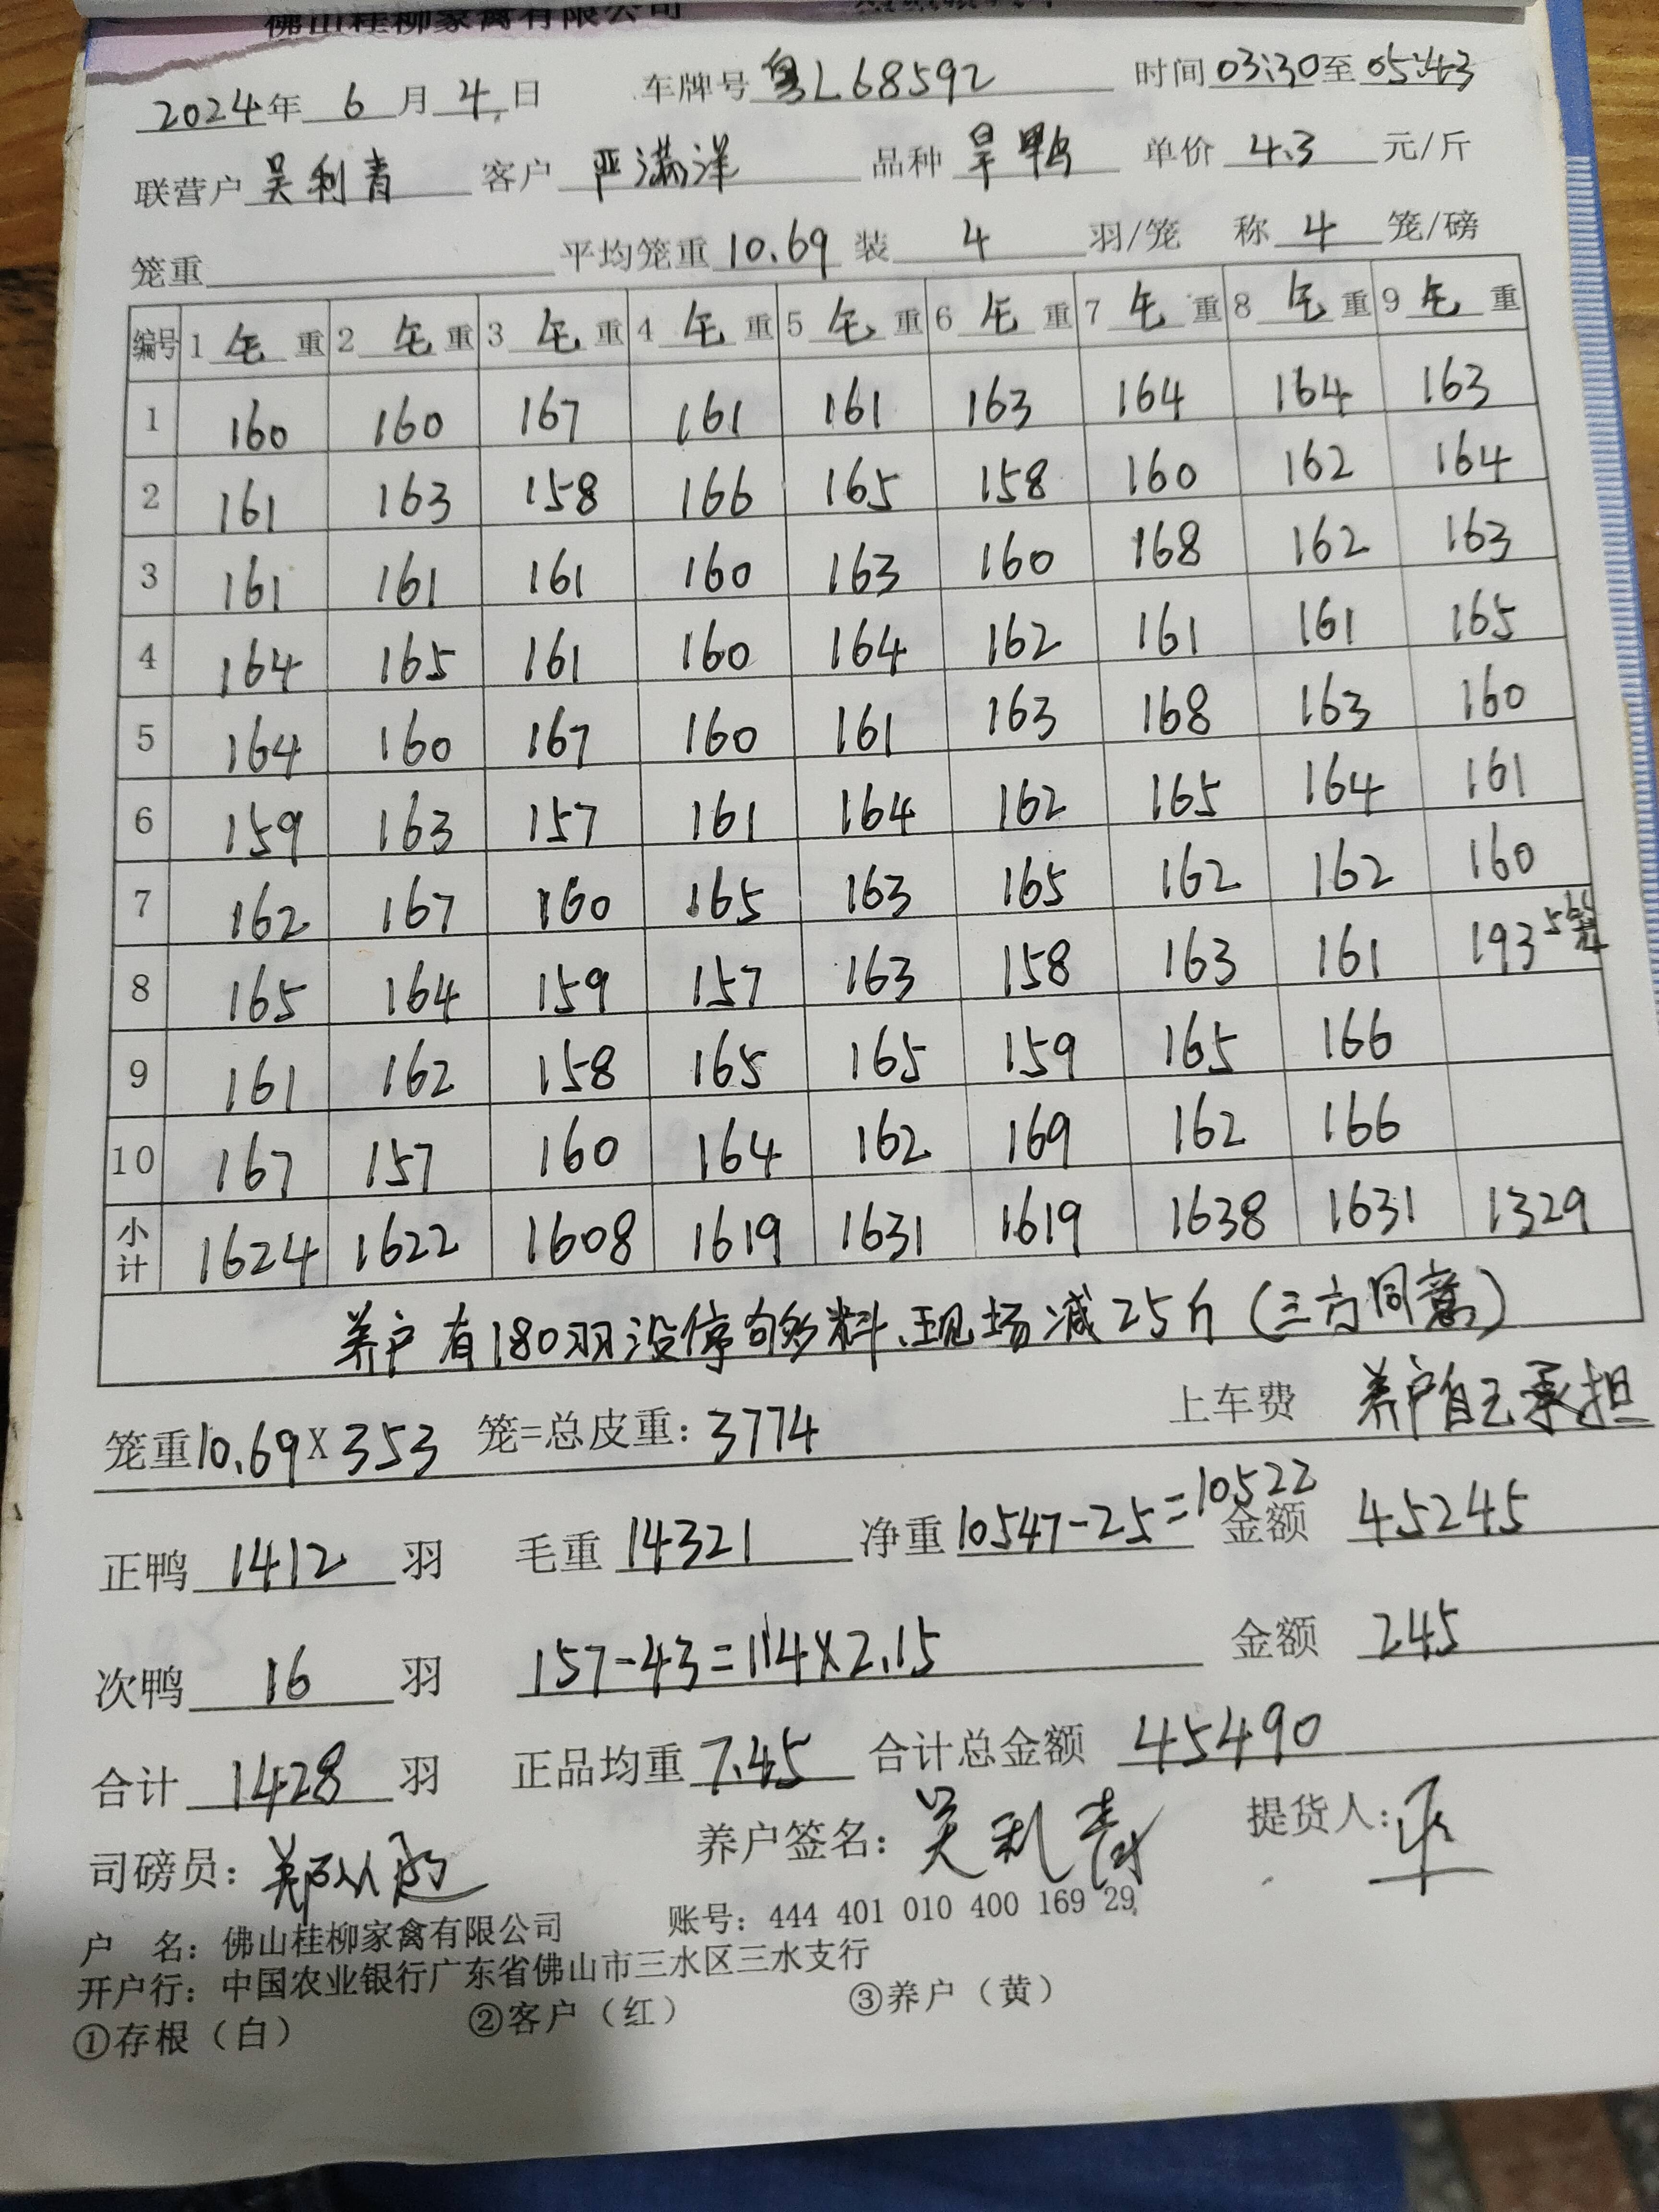 佛山桂柳家禽有限公司
2024年 6 月 4 日 车牌号 粤L68592 时间 03:30 至 05:43
联营户 吴利青 客户 严满洋 品种 旱鸭 单价 4.3 元/斤
笼重 平均笼重 10.69 装 4 羽/笼 称 4 笼/磅
编号 1 毛 重 2 毛 重 3 毛 重 4 毛 重 5 毛 重 6 毛 重 7 毛 重 8 毛 重 9 毛 重
1 160 160 167 161 161 163 164 164 163
2 161 163 158 166 165 158 160 162 164
3 161 161 161 160 163 160 168 162 163
4 164 165 161 160 164 162 161 161 165
5 164 160 167 160 161 163 168 163 160
6 159 163 157 161 164 162 165 164 161
7 162 167 160 165 163 165 162 162 160
8 165 164 159 157 163 158 163 161 193 5笼
9 161 162 158 165 165 159 165 166
10 167 157 160 164 162 169 162 166
小计 1624 1622 1608 1619 1631 1619 1638 1631 1329
养户有180羽没停够料、现场减25斤(三方同意)
笼重10.69X353 笼=总皮重: 3774 上车费 养户自己承担
正鸭 1412 羽 毛重 14321 净重 10547-25=10522 金额 45245
次鸭 16 羽 157-43=114X2.15 金额 245
合计 1428 羽 正品均重 7.45 合计总金额 45490
司磅员: 养户签名: 吴利青 提货人:
户 名: 佛山桂柳家禽有限公司 账号: 444 401 010 400 169 29
开户行: 中国农业银行广东省佛山市三水区三水支行
①存根(白) ②客户(红) ③养户(黄)